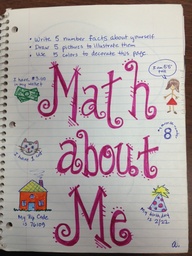 • Write 5 number facts about yourself
• Draw 5 pictures to illustrate them
• Use 5 colors to decorate this page
I have $3.00
in my wallet
Math
about
Me
8
I have 1 cat
My Zip Code
is
My birthday
is 2/22